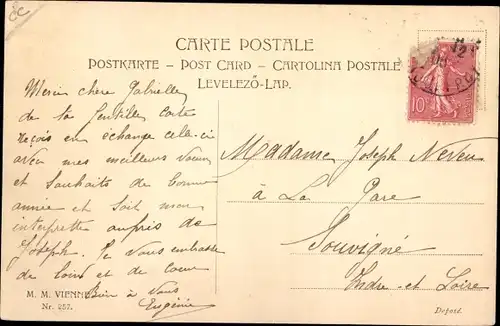 CC
CARTE POSTALE
POSTKARTE – POST CARD – CARTOLINA POSTALE
LEVELEZŐ-LAP.
10
Merci chère Gabrielle
de ta Gentille carte
reçois en échange celle-ci
avec mes meilleurs Vœux
et Souhaits de bonne
année et sois mon
interprette auprès de
Joseph. Je Vous embrasse
de loin et de cœur
Bien à Vous
Eugénie
Madame Joseph Neveu
à La Gare
Souvigné
Indre-et-Loire
M. M. VIENNE
Nr. 257.
Deposé.